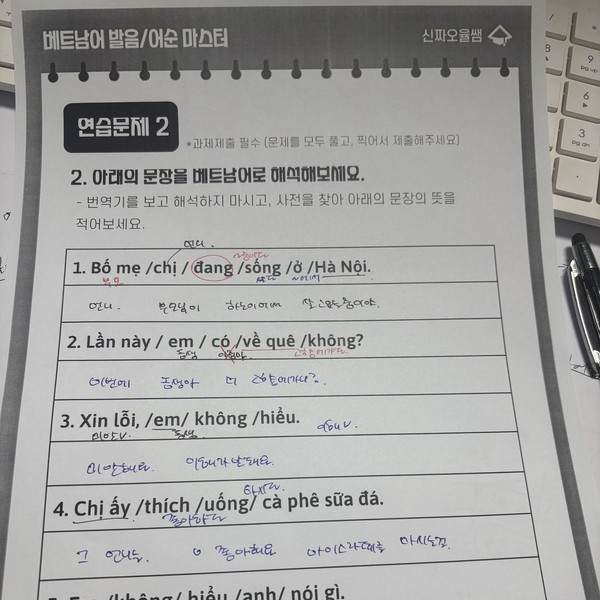 베트남어 발음/어순 마스터
신짜오율쌤
연습문제 2
*과제제출 필수 (문제를 모두 풀고, 찍어서 제출해주세요)
2. 아래의 문장을 베트남어로 해석해보세요.
- 번역기를 보고 해석하지 마시고, 사전을 찾아 아래의 문장의 뜻을
적어보세요.
언니.
1. Bố mẹ /chị / đang /sống /ở /Hà Nội.
부모
~에서
언니. 부모님이 하노이에서 살고있는중이야.
2. Lần này / em / có /về quê /không?
동생
고향에가다
이번에 동생아 너 고향에가니?
3. Xin lỗi, /em/ không /hiểu.
동생
미안해요. 이해가안돼요.
하지다.
4. Chị ấy /thích /uống/ cà phê sữa đá.
좋아하다
그 언니는 좋아해요 아이스라떼를 마시는걸.
/không/ hiểu /anh/ nói gì.